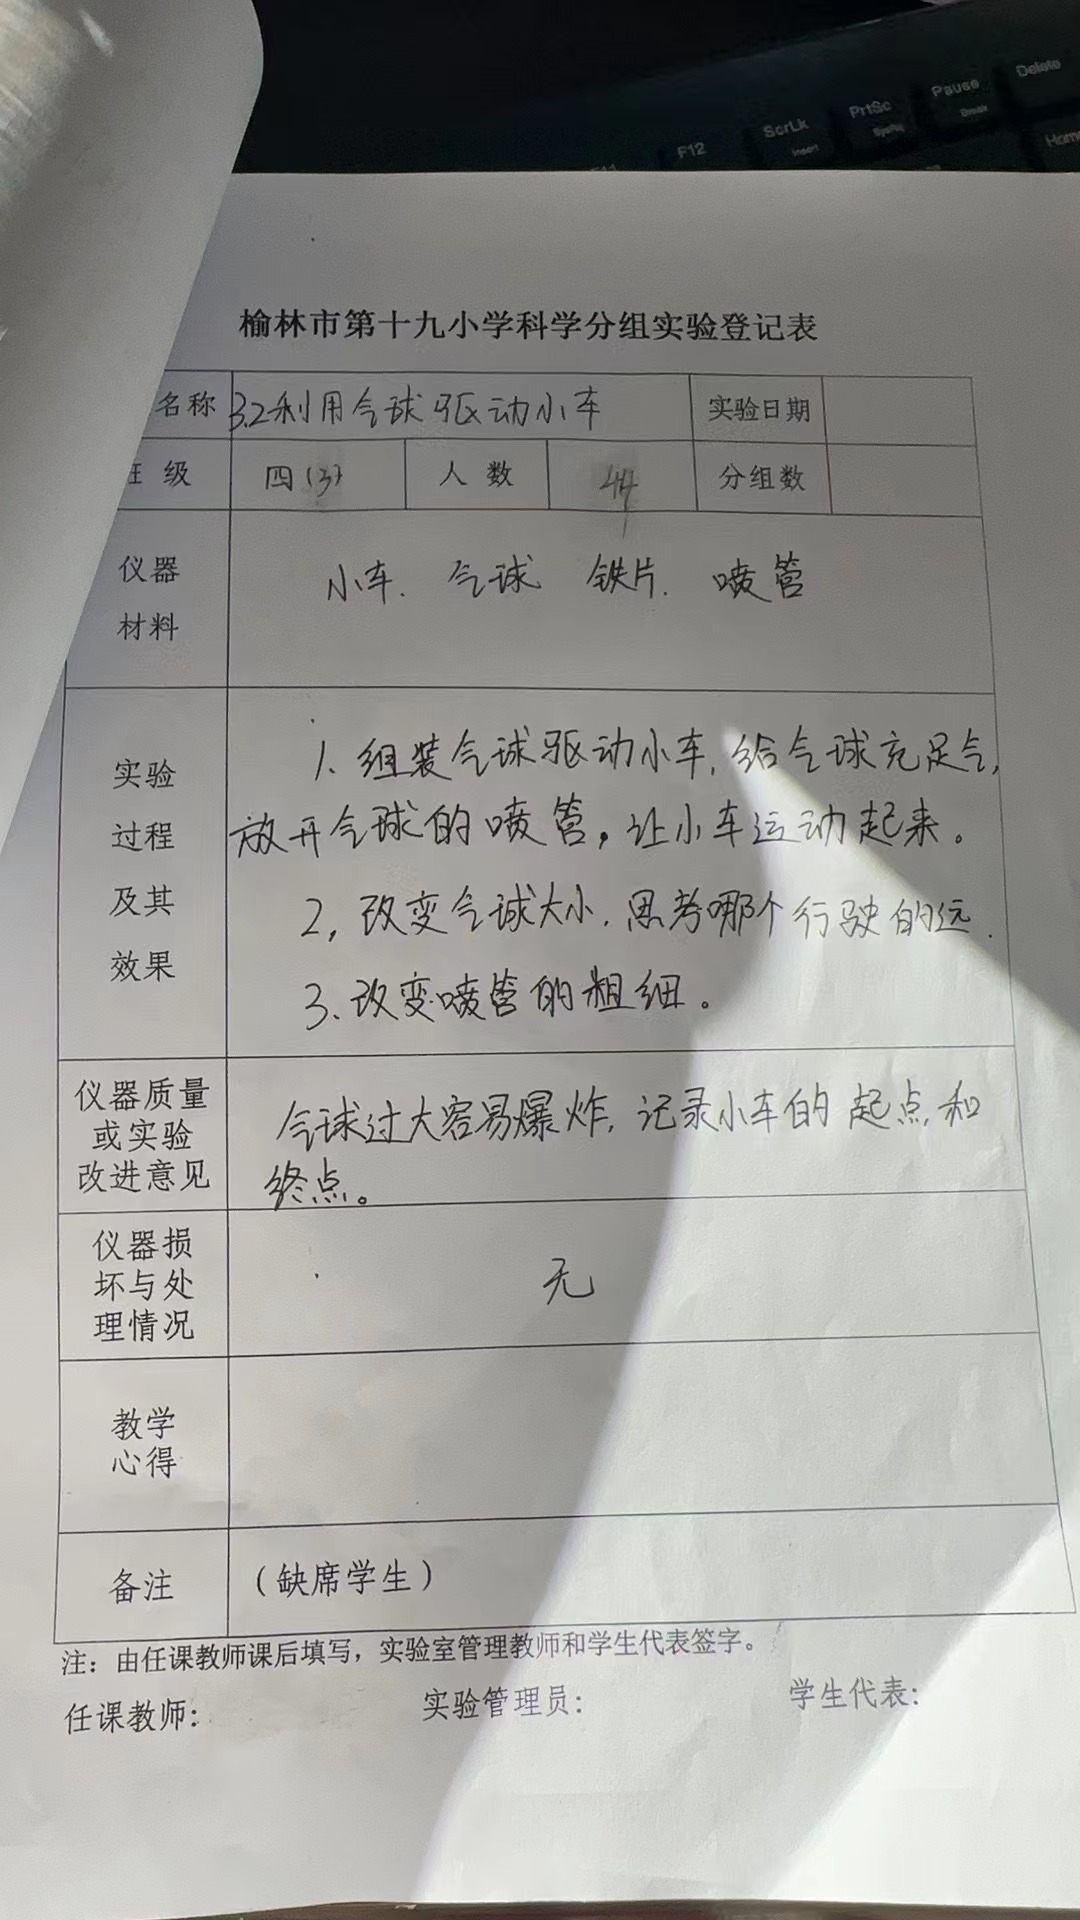 F12
ScrLk
Insert
PrtSc
SysRq
Pause
Break
Delete
Home
榆林市第十九小学科学分组实验登记表
名称 3.2利用气球驱动小车 实验日期
班 级 四(3) 人 数 44 分组数
仪器
材料
小车. 气球 铁片. 喷管
实验
过程
及其
效果
1. 组装气球驱动小车, 给气球充足气,
放开气球的喷管。让小车运动起来。
2, 改变气球大小. 思考哪个行驶的远.
3. 改变喷管的粗细。
仪器质量
或实验
改进意见
气球过大容易爆炸, 记录小车的起点和
终点。
仪器损
坏与处
理情况
无
教学
心得
备注 (缺席学生)
注: 由任课教师课后填写, 实验室管理教师和学生代表签字。
任课教师: 实验管理员: 学生代表: